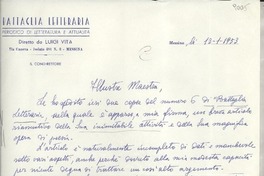 BATTAGLIA LETTERARIA
PERIODICO DI LETTERATURA E ATTUALITÀ
Diretto da LUIGI VITA
Via Caserma - Isolato 271 N. 8 - MESSINA
IL CONDIRETTORE
Messina, li 12-1-1953
Illustre Maestra,
Le ho spedito ieri due copie del numero 6 di Battaglia
letteraria, nella quale è apparso, a mia firma, un breve articolo
riassuntivo della Sua inimitabile attività e della Sua magnifica
opera di poesia.
L'articolo è naturalmente incompleto di dati e manchevole
sotto vari aspetti, anche perché dovuto alla mia modesta capacità
per niente degna di trattare un così alto argomento.